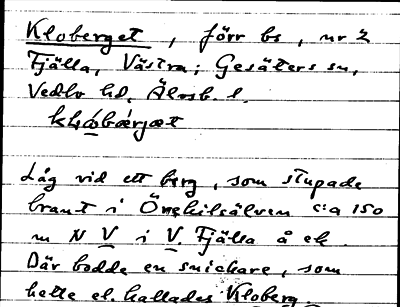 Kloberget, förr bs, nr 2
Fjälla, Västra; Gesäters sn,
Vedbo hd, Älvsb. l.
Låg vid ett berg, som stupade
brant i Örekilsälven c:a 150
m N V i V. Fjälla å ek.
Där bodde en snickare, som
hette el. kallades Kloberg.